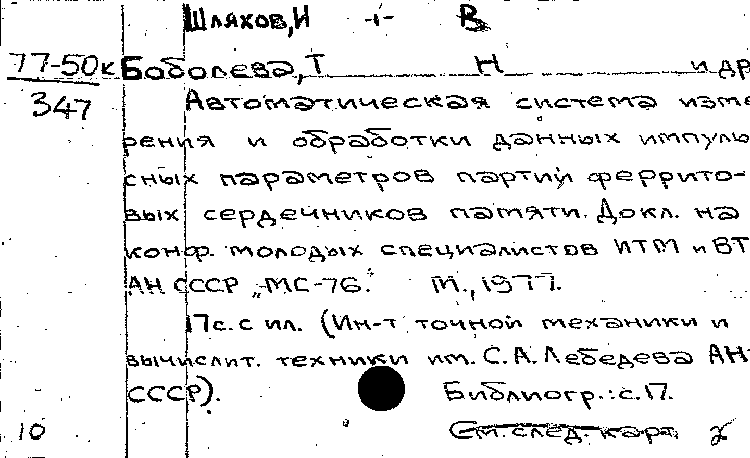 Шляхов, И В
77-50к Боболева, Т Н и др
347 Автоматическая система изме
рения и обработки данных импуль
сных параметров партий феррито-
вых сердечников памяти. Докл. на
конф. молодых специалистов ИТМ и ВТ
АН СССР „МС-76." М., 1977.
17с. с ил. (Ин-т точной механики и
вычислит. техники им. С.А. Лебедева АН
СССР). Библиогр.: с.17.
10 См. след. карт. 2